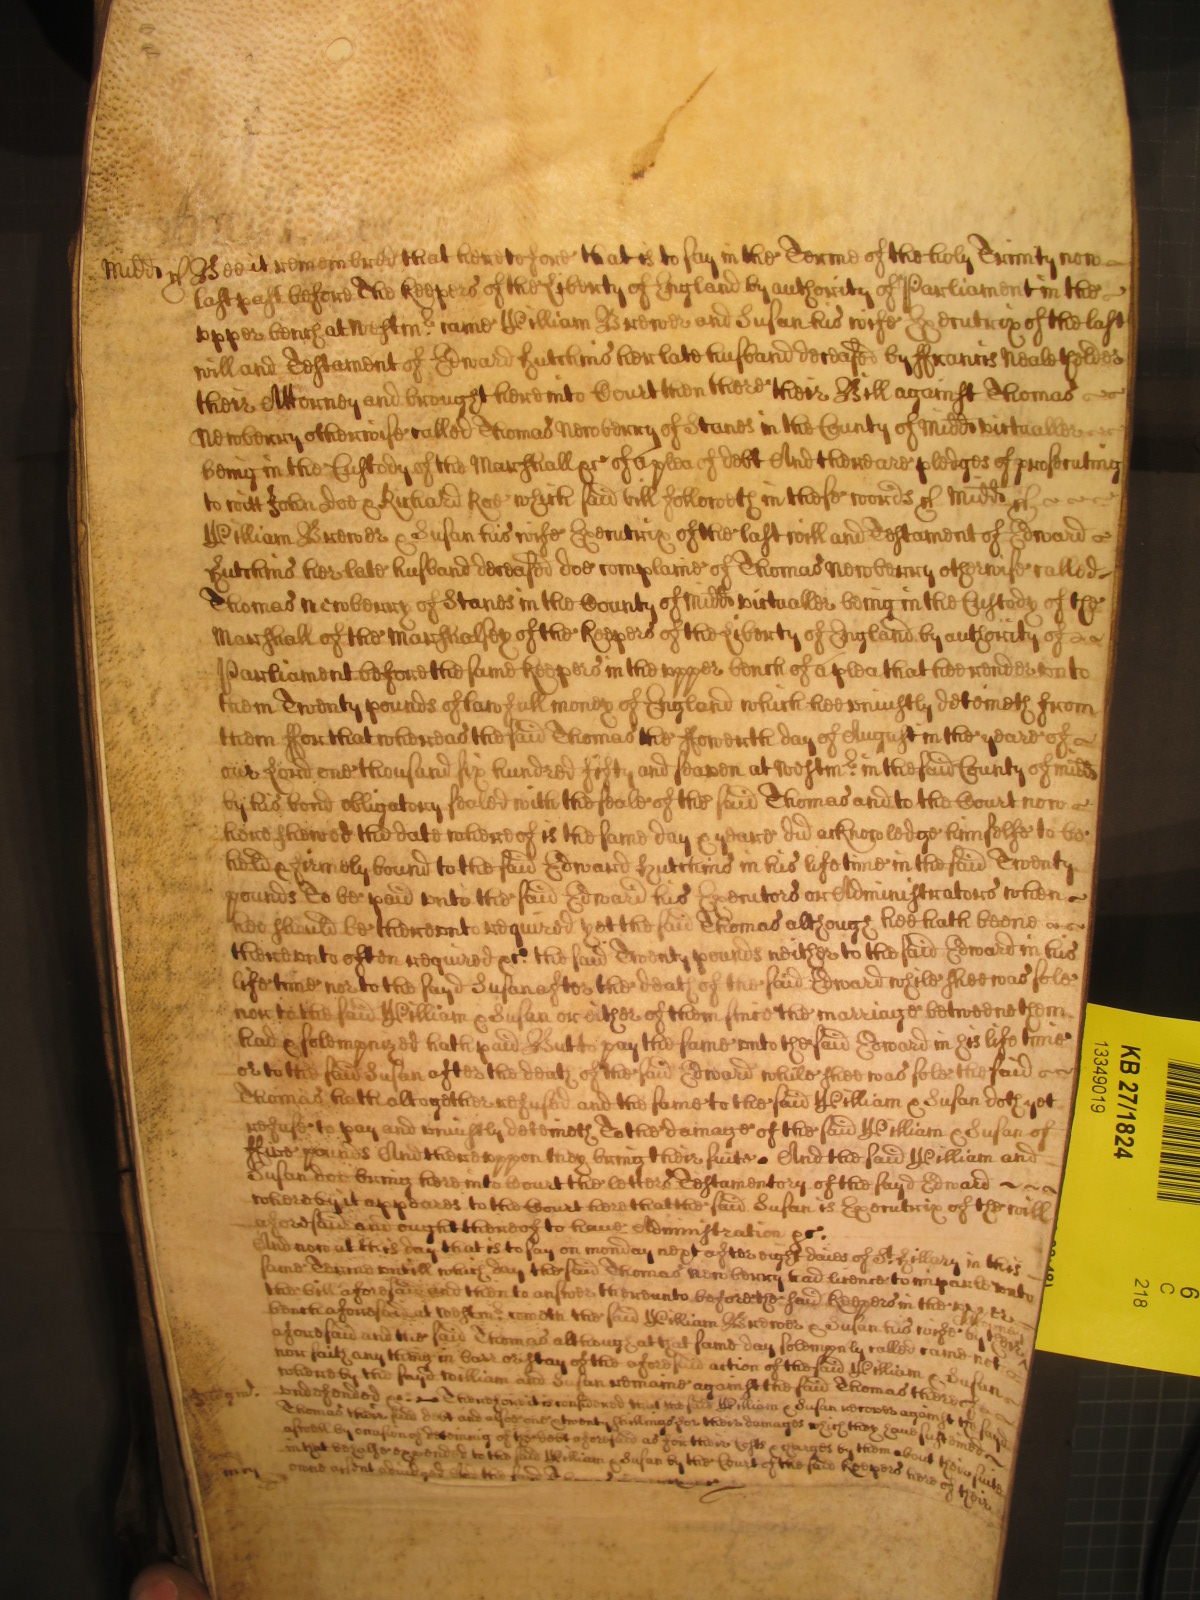 Midd ss Bee it remembred that heretofore that is to say in the Terme of the holy Trinity now
last past before the Keepers of the Liberty of England by authority of Parliament in the
upper bench at Westmr. came William Brewer and Susan his wife Executrix of the last
will and Testament of Edward Hutchins her late husband deceased by Francis Neale
their Attorney and brought here into Court then there their Bill against Thomas
Newberry otherwise called Thomas Newberry of Stanes in the County of Midd victualler
being in the Custody of the Marshall &c of a plea of debt And there are pledges of prosecuting
to witt John Doe & Richard Roe which said bill followeth in these words ss Midd ss
William Brewer & Susan his wife Executrix of the last will and Testament of Edward
Hutchins her late husband deceased doe complaine of Thomas Newberry otherwise called
Thomas Newberry of Stanes in the County of Midd victualler being in the Custody of the
Marshall of the Marshalsey of the Keepers of the Liberty of England by authority of
Parliament before the same Keepers in the upper bench of a plea that hee render unto
them Twenty pounds of lawfull money of England which hee uniustly deteineth from
them ffor that whereas the said Thomas the ffowerth day of August in the yeare of
our Lord one thousand six hundred fifty and seaven at Westmr. in the said County of Midd
by his bond obligatory sealed with the seale of the said Thomas and to the Court now
here shewed the date whereof is the same day & yeare did acknowledge himselfe to be
held & firmely bound to the said Edward Hutchins in his life time in the said Twenty
pounds To be paid unto the said Edward his Executors or Administrators when
hee should be thereunto required yet the said Thomas although hee hath beene
thereunto often required &c. the said Twenty pounds neither to the said Edward in his
life time nor to the sayd Susan after the death of the said Edward while shee was sole
nor to the said William & Susan or either of them since the marriage betweene them
had & solempnized hath paid But to pay the same unto the said Edward in his life time
or to the said Susan after the death of the said Edward while shee was sole the said
Thomas hath altogether refused and the same to the said William & Susan doth yet
refuse to pay and uniustly deteineth To the damage of the said William & Susan of
ffive pounds And thereuppon they bring their suite. And the said William and
Susan doe bring here into Court the letters Testamentory of the sayd Edward
whereby it appeares to the Court here that the said Susan is Executrix of the will
aforesaid and ought thereof to have Administration &c.
And now at this day that is to say on monday next after eight daies of St. Hillary in this
same Terme untill which day the said Thomas Newberry had licence to imparle unto
the bill aforesaid and then to answer thereunto before the said Keepers in the upper
bench aforesaid at Westmr. cometh the said William Brewer & Susan his wife by their Attorney
aforesaid and the said Thomas although at that same day solempnly called came not
nor saith any thing in barr or stay of the aforesaid action of the said William & Susan
whereby the sayd William and Susan remaine against the said Thomas therein
undefended &c. Therefore it is considered that the said William & Susan recover against the said
Thomas their said debt and alsoe one & twenty shillings for their damages which they have susteined
aswell by occasion of deteining of the debt aforesaid as for their costs & charges by them about their suite
in that behalfe expended to the said William & Susan by the Court of the said Keepers here of their
owne assent adiudged And the said
KB 27/1824
13349019
6
C
218